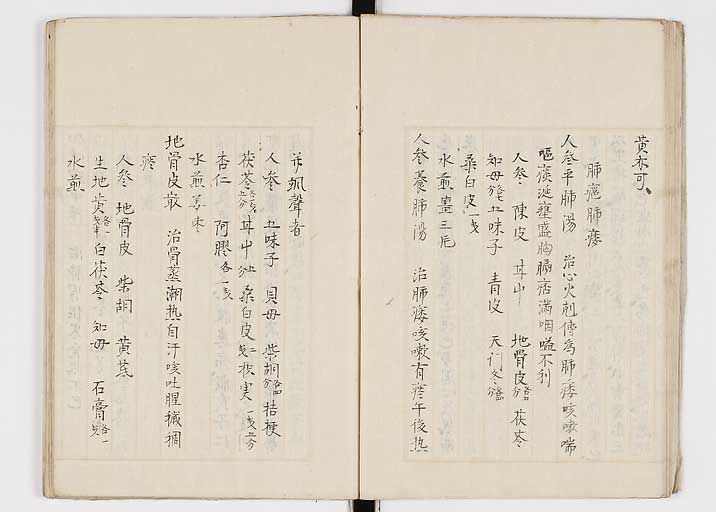 黄亦可
肺痿肺痿
人参平肺湯 治心火剋傳爲肺痿咳嗽喘
嘔痰涎壅盛胸膈痞滿咽嗌不利
人参 陳皮 甘屮 地骨皮 茯苓
知母 五味子 青皮 天门冬
桑白皮一戋
水煎薑三片
人参養肺湯 治肺痿咳嗽有痰午後熱
并㺸聲者
人参 五味子 貝母 柴胡 桔梗
茯苓 甘屮 桑白皮 枳実
杏仁 阿膠各一戋
水煎姜枣
地骨皮散 治骨蒸潮熱自汗咳吐腥穢稠
痰
人参 地骨皮 柴胡 黄芪
生地黄 白茯苓 知母 石膏
水煎